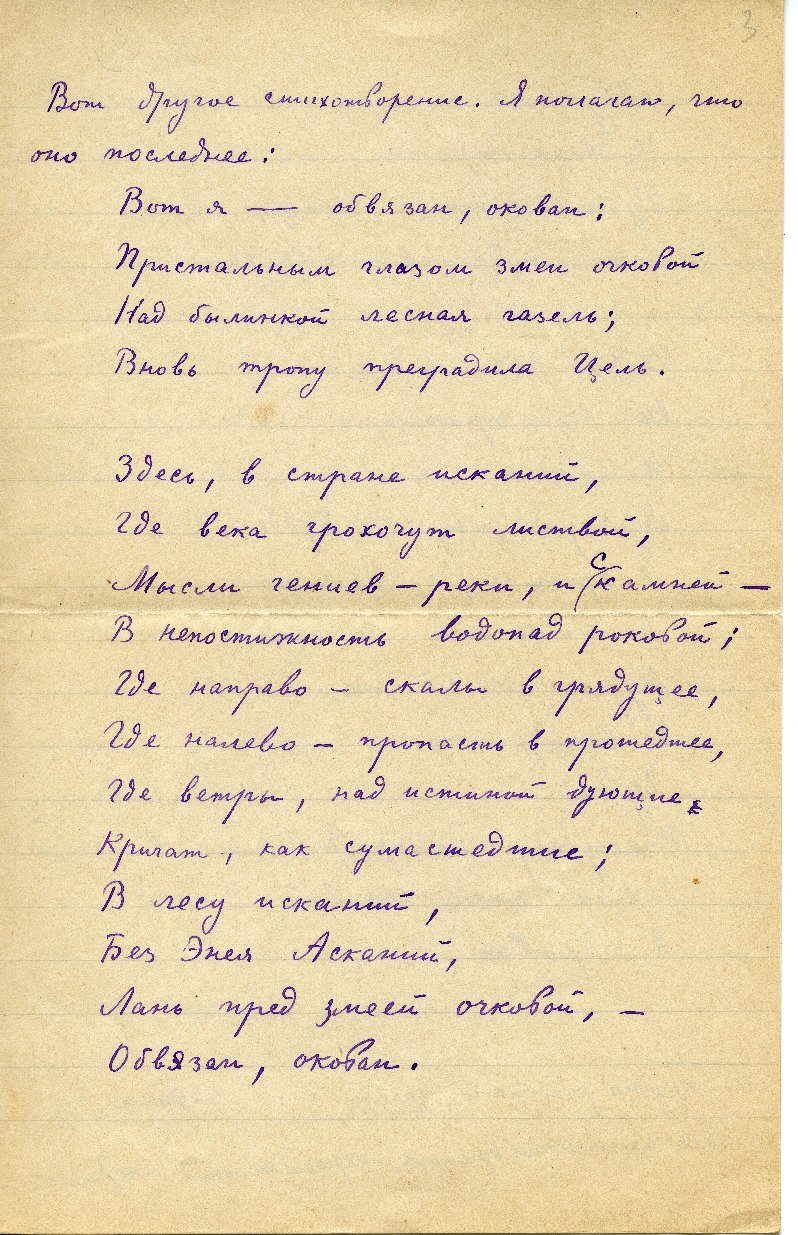 3.
Вот другое стихотворение. Я полагаю, что
оно последнее:
Вот я — обвязан, окован;
Пристальным глазом змеи очковой
Над былинкой лесная газель;
Вновь тропу преградила Цель.
Здесь, в стране исканий,
Где века грохочут листвой,
Мысли гениев – реки, и (с камней –
В непостижность водопад роковой;
Где направо – скалы в грядущее,
Где налево – пропасть в прошедшее,
Где ветры, над истиной дующие,
Кричат, как сумасшедшие;
В лесу исканий,
Без Энея Асканий,
Лань пред змеей очковой, –
Обвязан, окован.